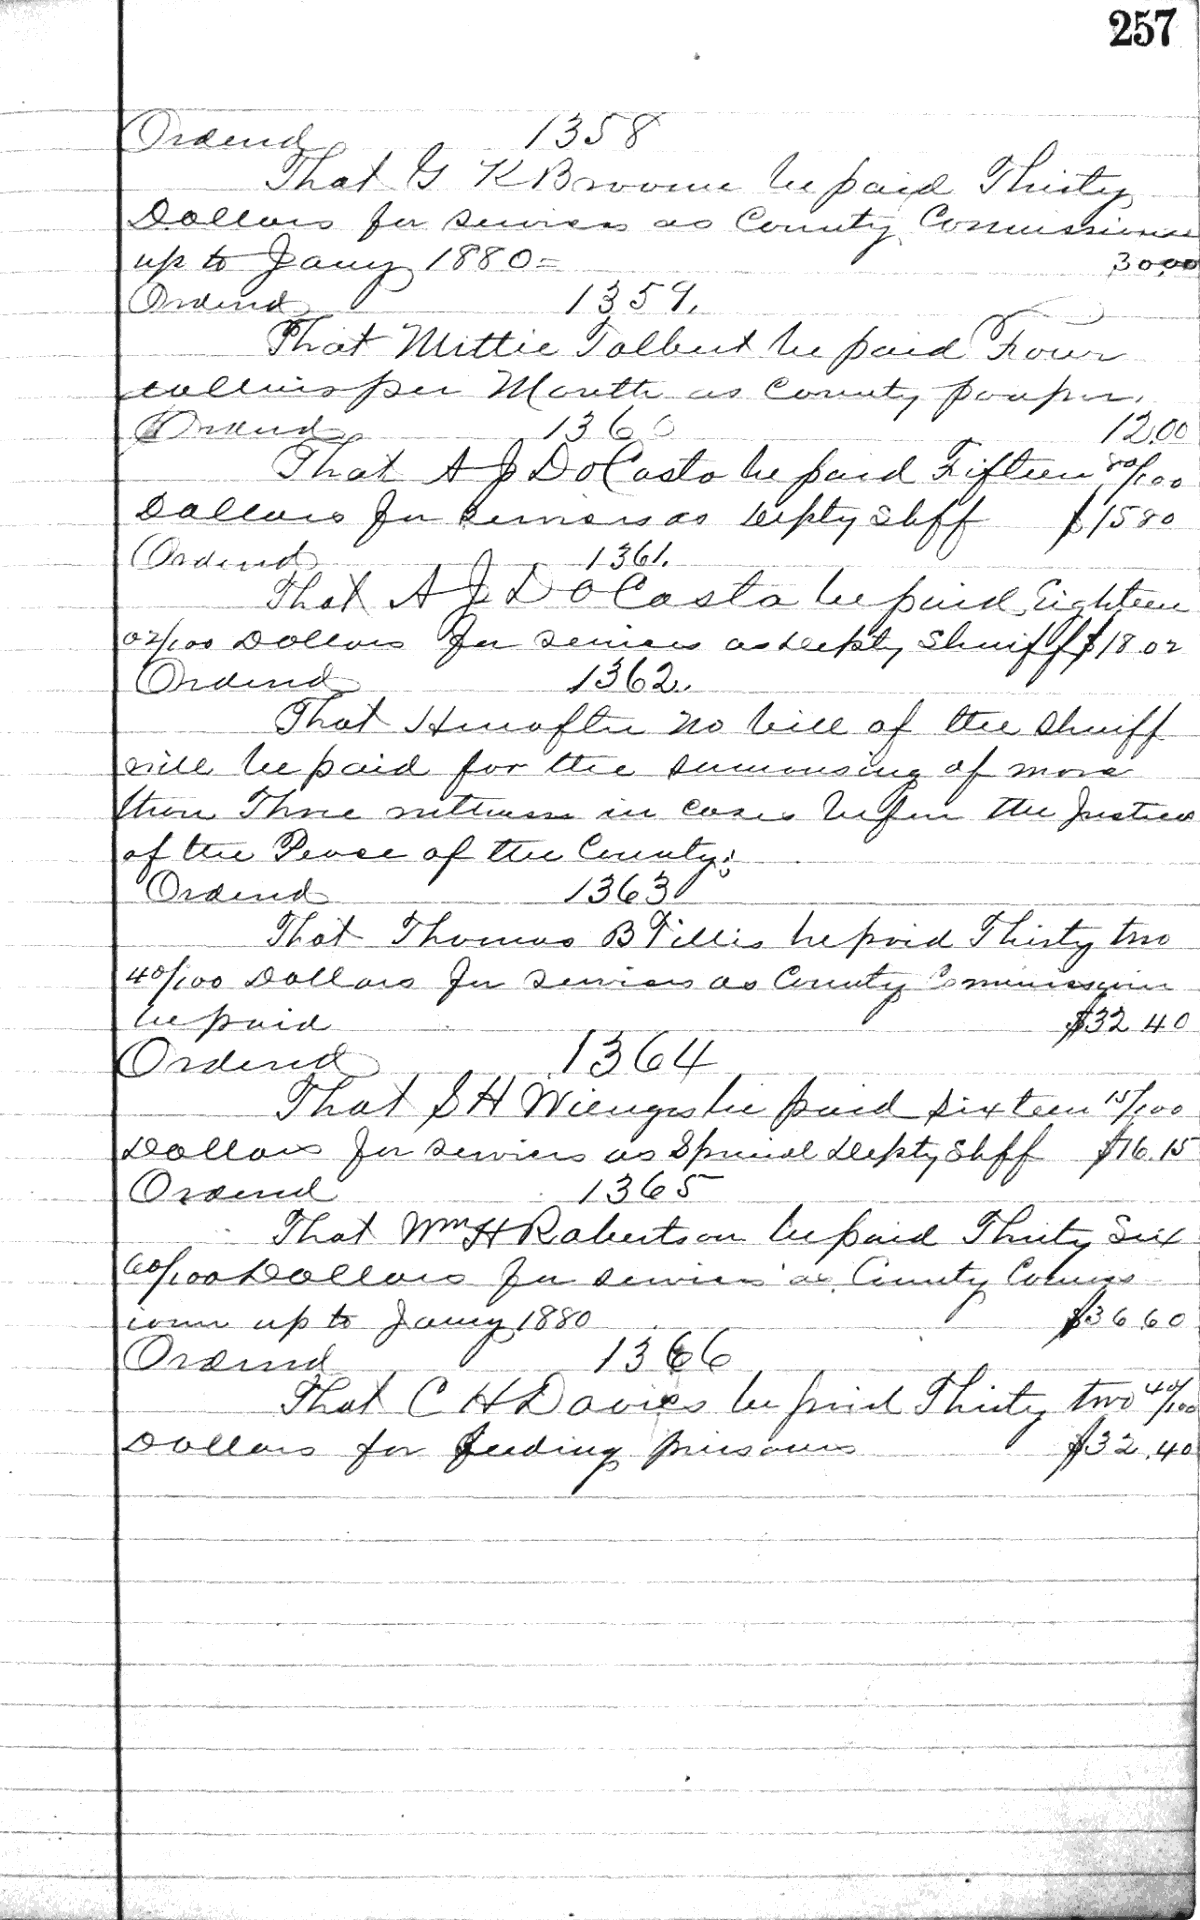 257
Ordered 1358
That G K Broome be paid Thirty
Dollars for services as County Commissioner
up to Jany 1880= 30.00
Ordered 1359.
That Mittie Talbert be paid Four
dollars per Month as County pauper.
Ordered 1360 12.00
That A J DoCosta be paid Fifteen 80/100
Dollars for services as Depty Shff $15 80
Ordered 1361.
That A J DoCosta be paid Eighteen
02/100 Dollars for services as Depty Sheriff $18 02
Ordered 1362.
That Hereafter no bill of the Sheriff
will be paid for the sumonsing of more
than Three witness in cases before the Justices
of the Peace of the County;
Ordered 1363
That Thomas B Fillis be paid Thirty two
40/100 Dollars for services as County Commissioner
be paid $32 40
Ordered 1364
That S H be paid Sixteen 15/100
Dollars for services as Special Depty Shff $16.15
Ordered 1365
That Wm H Robertson be paid Thirty Six
60/100 Dollars for services as County Commis
ioner up to Jany 1880 $36 60
Ordered 1366
That C H Davies be paid Thirty two 40/100
Dollars for feeding prisoners $32.40